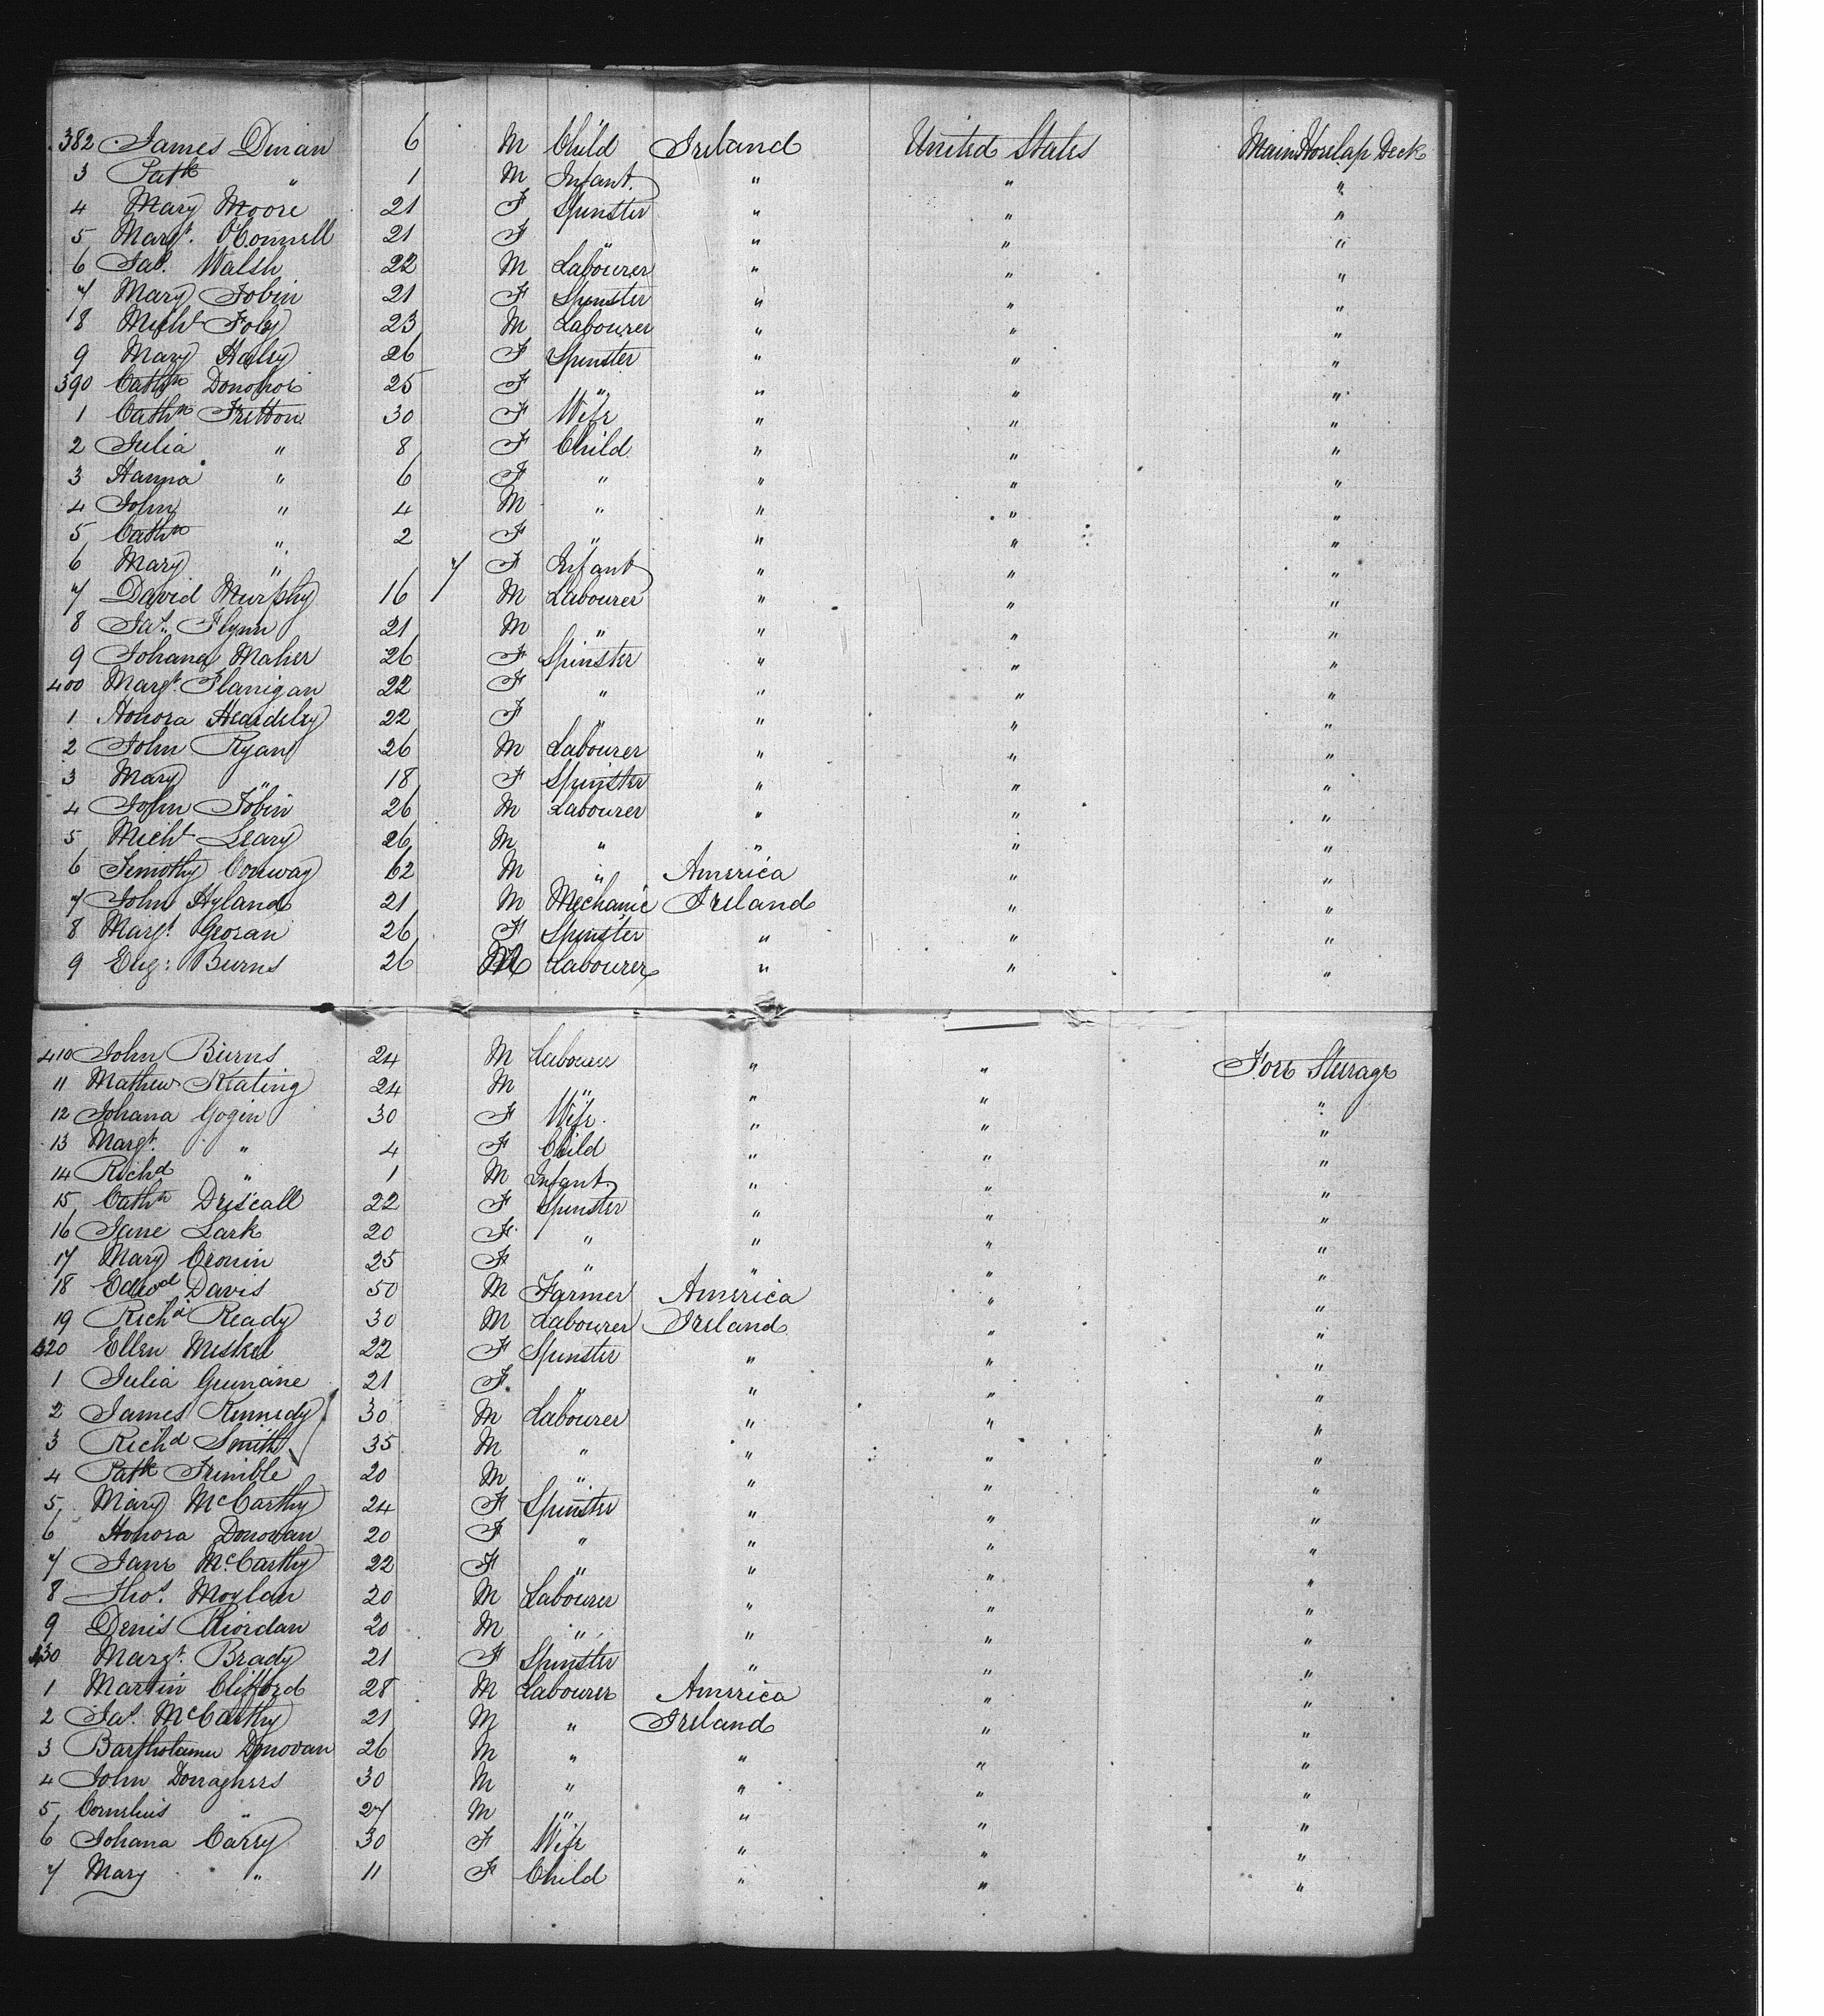 382 James Dinan 6 M Child Ireland United States Main Horlap Deck
3 Patk " 1 M Infant " " "
4 Mary Moore 21 F Spinster " " "
5 Margt. O'Connell 21 F " " " "
6 Jas. Walsh 22 M Labourer " " "
7 Mary Tobin 21 F Spinster " " "
8 Michl Foley 23 M Labourer " " "
9 Mary Haley 26 F Spinster " " "
390 Cathn Donohoe 25 F " " " "
1 Cathn Fritton 30 F Wife " " "
2 Julia " 8 F Child " " "
3 Hanna " 6 F " " " "
4 John " 4 M " " " "
5 Cathn " 2 F " " " "
6 Mary " 7 F Infant " " "
7 David Murphy 16 M Labourer " " "
8 Jas. Flynn 21 M " " " "
9 Johana Maher 26 F Spinster " " "
400 Margt. Flanigan 22 F " " " "
1 Honora Heardsley 22 F " " " "
2 John Ryan 26 M Labourer " " "
3 Mary " 18 F Spinster " " "
4 John Tobin 26 M Labourer " " "
5 Michl Leary 26 M " " " "
6 Timothy Conway 62 M " America " "
7 John Hyland 21 M Mechanic Ireland " "
8 Margt. Georan 26 F Spinster " " "
9 Eug: Burns 26 M Labourer " " "
410 John Burns 24 M Labourer " " Fore Steerage
11 Mathew Keating 24 M " " " "
12 Johana Gogin 30 F Wife " " "
13 Margt. " 4 F Child " " "
14 Richd " 1 M Infant " " "
15 Cathn Driscall 22 F Spinster " " "
16 Jane Lark 20 F " " " "
17 Mary Cronin 25 F " " " "
18 Edwd Davis 50 M Farmer America " "
19 Richd Ready 30 M Labourer Ireland " "
420 Ellen Meskel 22 F Spinster " " "
1 Julia Guinane 21 F " " " "
2 James Kennedy 30 M Labourer " " "
3 Richd Smith 35 M " " " "
4 Patk Trimble 20 M " " " "
5 Mary McCarthy 24 F Spinster " " "
6 Honora Donovan 20 F " " " "
7 Jane McCarthy 22 F " " " "
8 Thos. Moylan 20 M Labourer " " "
9 Denis Riordan 20 M " " " "
430 Margt. Brady 21 F Spinster " " "
1 Martin Clifford 28 M Labourer America " "
2 Jas. McCarthy 21 M " Ireland " "
3 Bartholamew Donovan 26 M " " " "
4 John Donaghers 30 M " " " "
5 Cornelius " 27 M " " " "
6 Johana Carry 30 F Wife " " "
7 Mary " 11 F Child " " "